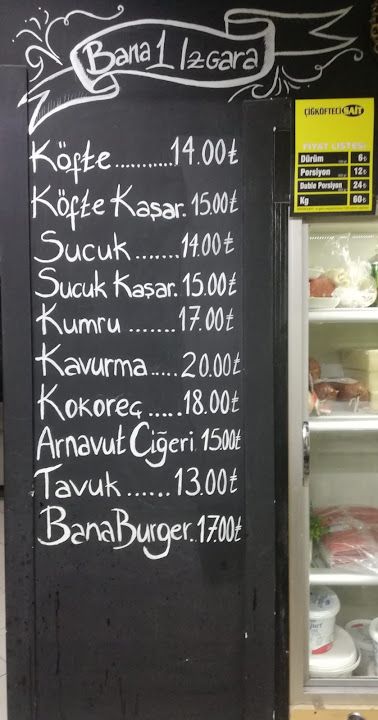 Bana 1 Izgara
Köfte...........14.00₺
Köfte Kaşar. 15.00₺
Sucuk.......14.00₺
Sucuk Kaşar. 15.00₺
Kumru.......17.00₺
Kavurma.....20.00₺
Kokoreç.....18.00₺
Arnavut Ciğeri 15.00₺
Tavuk......13.00₺
BanaBurger..17.00₺
ÇİĞKÖFTECİ SAİT
FİYAT LİSTESİ
Dürüm 6₺
Porsiyon 12₺
Duble Porsiyon 24₺
Kg 60₺